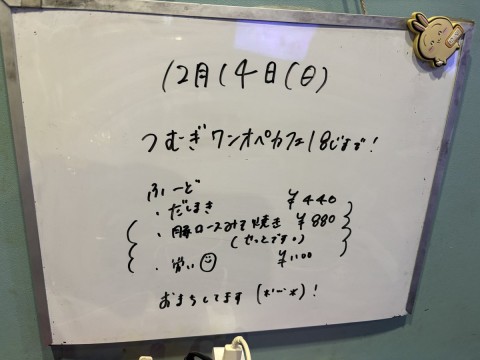 12月14日(日)
つむぎワンオペカフェ18じまで!
ふーど
・だしまき ¥440
・豚ロースみそ焼き ¥880
(せっとです。)
・笑い ¥1100
おまちしてます (*ˊ˘ˋ*) !